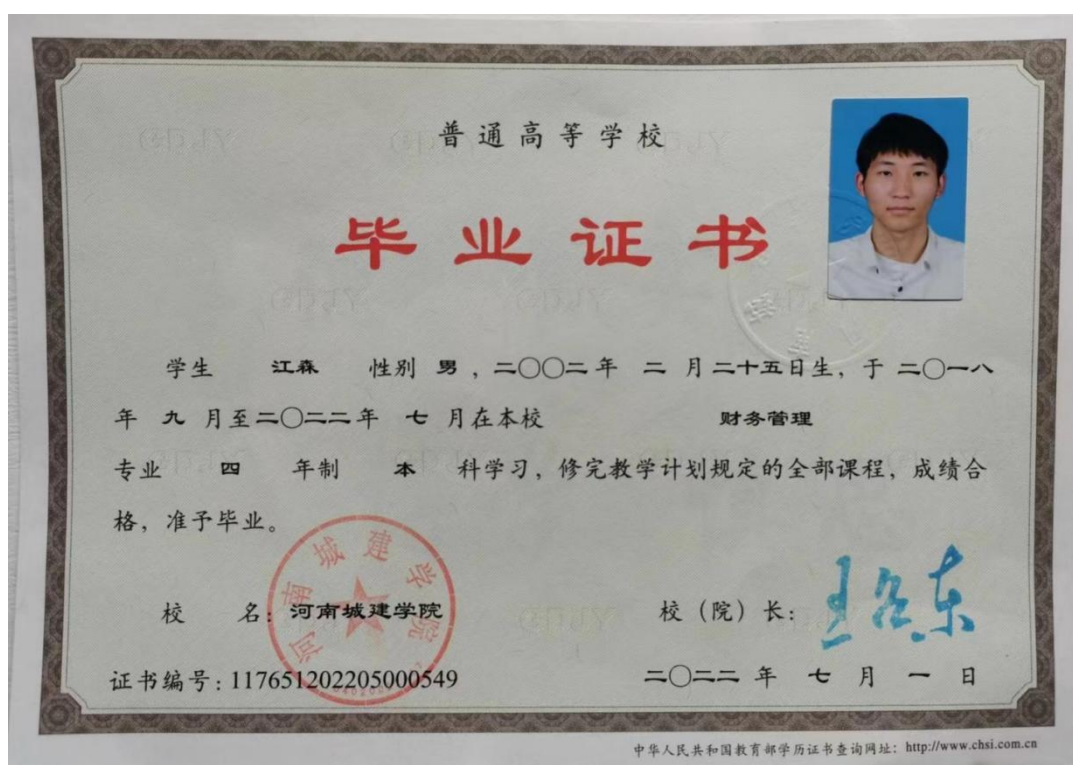 普通高等学校
毕业证书
学生 江森 性别 男，二〇〇二年 二 月二十五日生，于 二〇一八
年 九 月至二〇二二年 七 月在本校 财务管理
专业 四 年制 本 科学习，修完教学计划规定的全部课程，成绩合
格，准予毕业。
河南城建学院
校 名：河南城建学院 校（院）长：
证书编号：117651202205000549 二〇二二 年 七 月 一 日
中华人民共和国教育部学历证书查询网址：http://www.chsi.com.cn